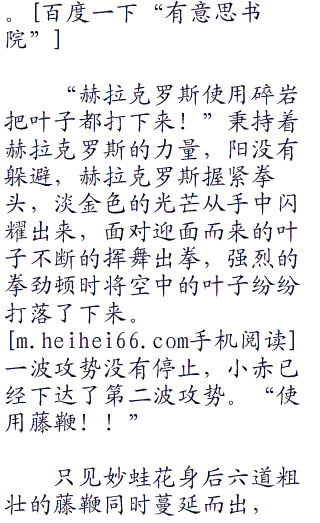 。[百度一下“有意思书
院”]
“赫拉克罗斯使用碎岩
把叶子都打下来！”秉持着
赫拉克罗斯的力量，阳没有
躲避，赫拉克罗斯握紧拳
头，淡金色的光芒从手中闪
耀出来，面对迎面而来的叶
子不断的挥舞出拳，强烈的
拳劲顿时将空中的叶子纷纷
打落了下来。
[m.heihei66.com手机阅读]
一波攻势没有停止，小赤已
经下达了第二波攻势。“使
用藤鞭！！”
只见妙蛙花身后六道粗
壮的藤鞭同时蔓延而出，